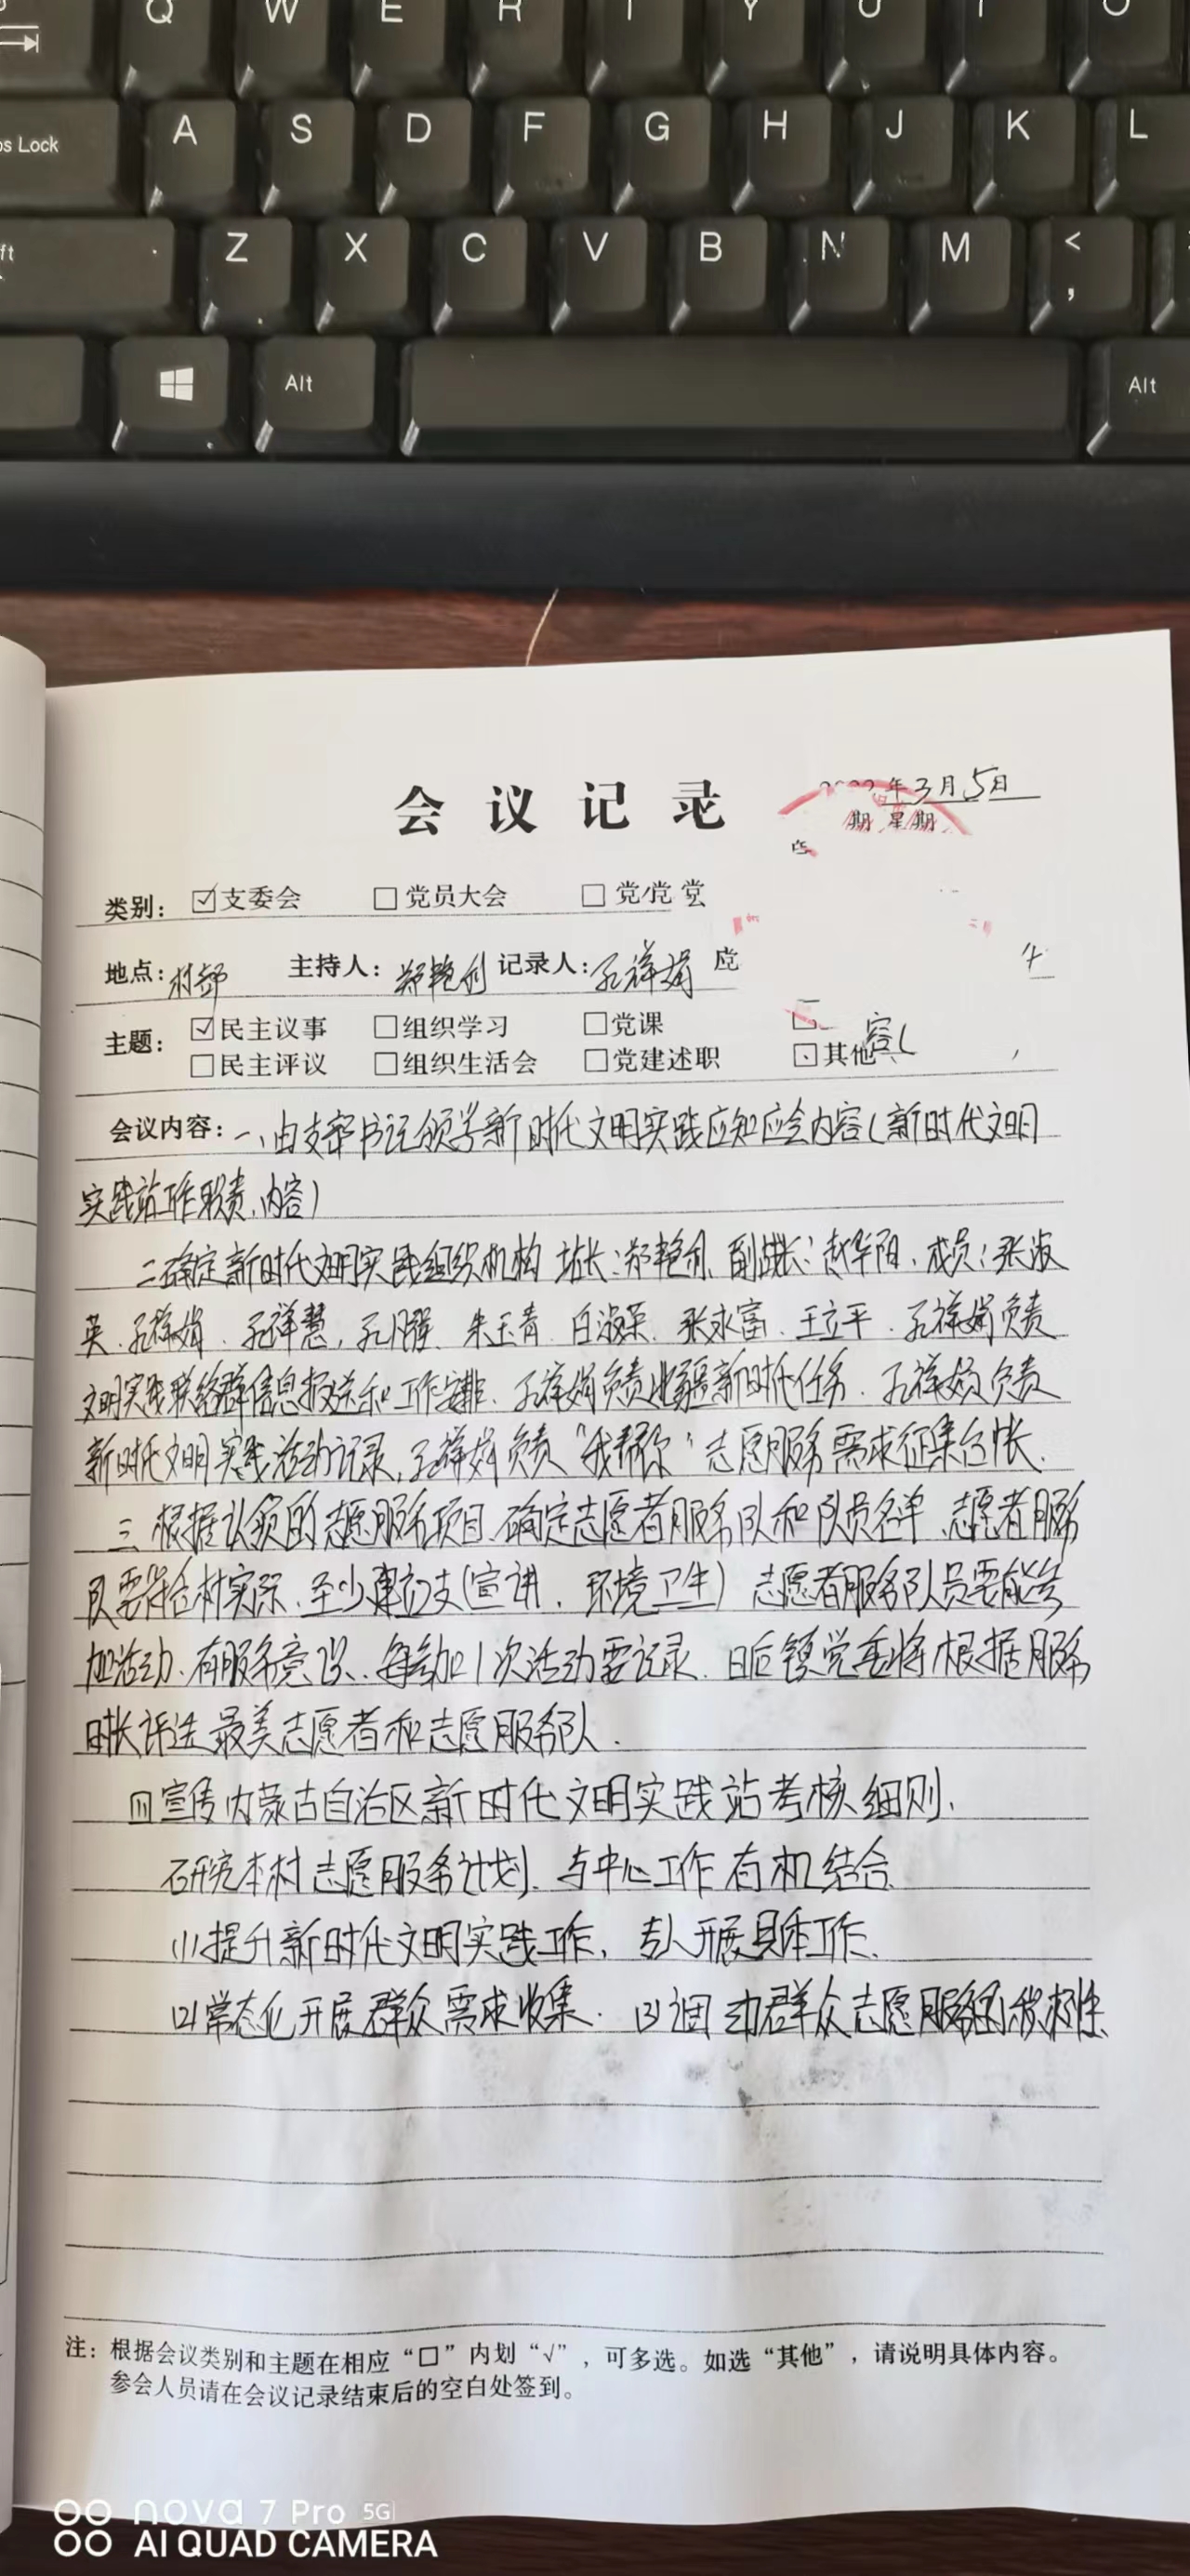 Q W E R T Y U I O
ps Lock A S D F G H J K L
ft Z X C V B N M < ,
Alt Alt
会议记录
年3月5日
期 星期
类别： ☑支委会 □党员大会 □党
地点：村部 主持人：郑艳创 记录人：孔祥娟
主题： ☑民主议事 □组织学习 □党课
□民主评议 □组织生活会 □党建述职 其他 容(
会议内容：一、由支部书记领学新时代文明实践应知应会内容(新时代文明
实践站工作职责、内容)
二确定新时代文明实践组织机构 站长：郑艳创、副站长：赵华阳、成员：张淑
英、孔祥娟、孔祥慧，孔 朱玉青 白淑荣、张永富、王立平、孔祥娟负责
文明实践联络群信息报送和工作安排、孔祥娟负责 新时代任务、孔祥娟负责
新时代文明实践活动记录，孔祥娟负责“我帮你”志愿服务需求征集台帐、
三、根据认领的志愿服务项目、确定志愿者服务队和队员名单、志愿者服务
队要符合村实际、至少建立 支(宣讲、环境卫生) 志愿者服务队员要能参
加活动、有服务意识、每参加1次活动要记录、日后镇党委将根据服务
时长评选最美志愿者和志愿服务队.
四宣传内蒙古自治区新时代文明实践站考核细则、
研究本村志愿服务计划、与中心工作有机结合
(1)提升新时代文明实践工作，专人开展具体工作、
(2)常态化开展群众需求收集. (3)调动群众志愿服务的积极性、
注：根据会议类别和主题在相应“□”内划“√”，可多选。如选“其他”，请说明具体内容。
参会人员请在会议记录结束后的空白处签到。
nova 7 Pro 5G
AI QUAD CAMERA